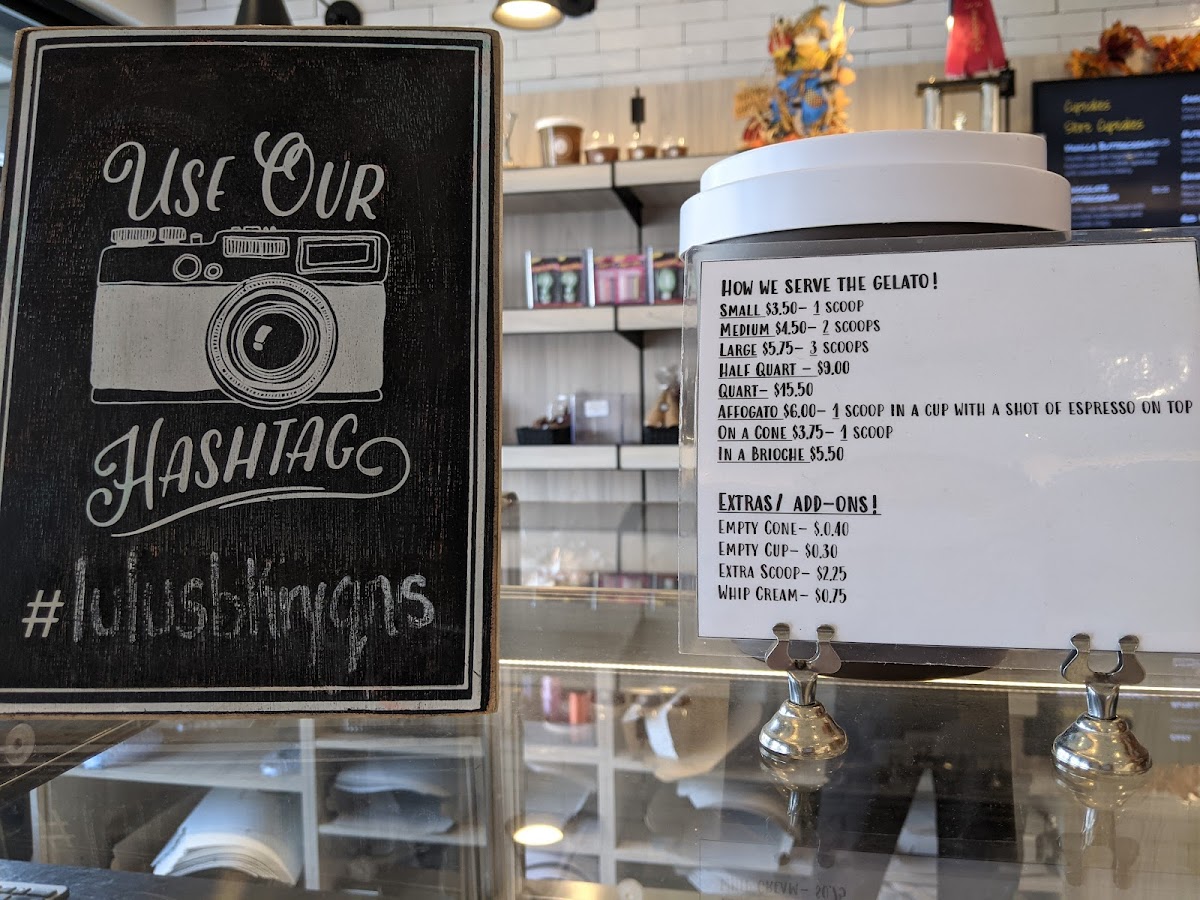 Use Our
Hashtag
How we serve the gelato!
Small $3.50- 1 scoop
Medium $4.50- 2 scoops
Large $5.75- 3 scoops
Half Quart - $9.00
Quart- $15.50
Affogato $6.00- 1 scoop in a cup with a shot of espresso on top
On a Cone $3.75- 1 scoop
In a Brioche $5.50
Extras/ add-ons!
Empty Cone- $.0.40
Empty Cup- $0.30
Extra Scoop- $2.25
Whip Cream- $0.75
Cupcakes
Store Cupcakes
Vanilla Buttercream